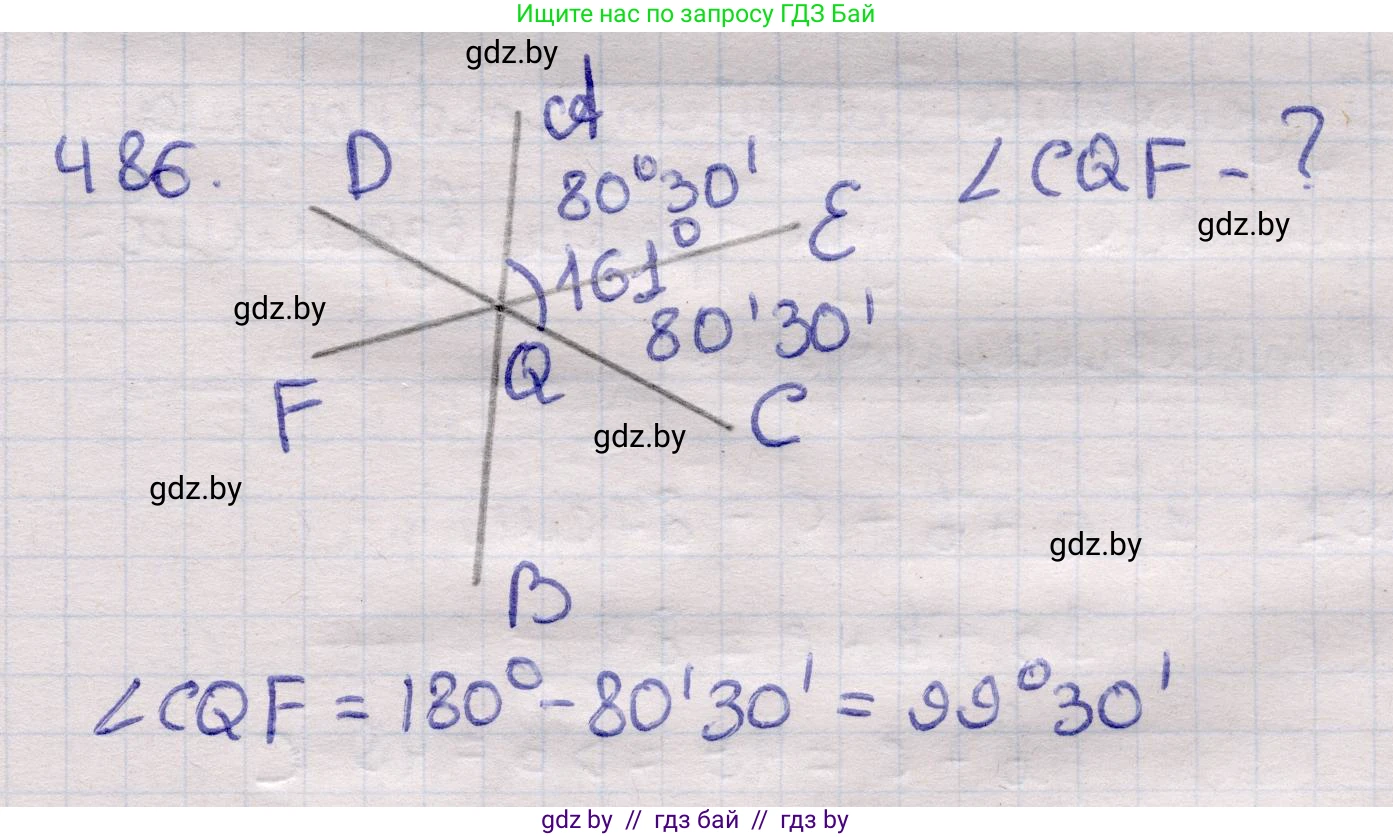 Ищите нас по запросу ГДЗ Бай
gdz.by
A
486. D 80°30' ∠CQF - ?
E
gdz.by
161°
gdz.by
80'30'
Q
F C
gdz.by
gdz.by
gdz.by
B
∠CQF = 180° - 80'30' = 99°30'
gdz by // гдз бай // гдз by